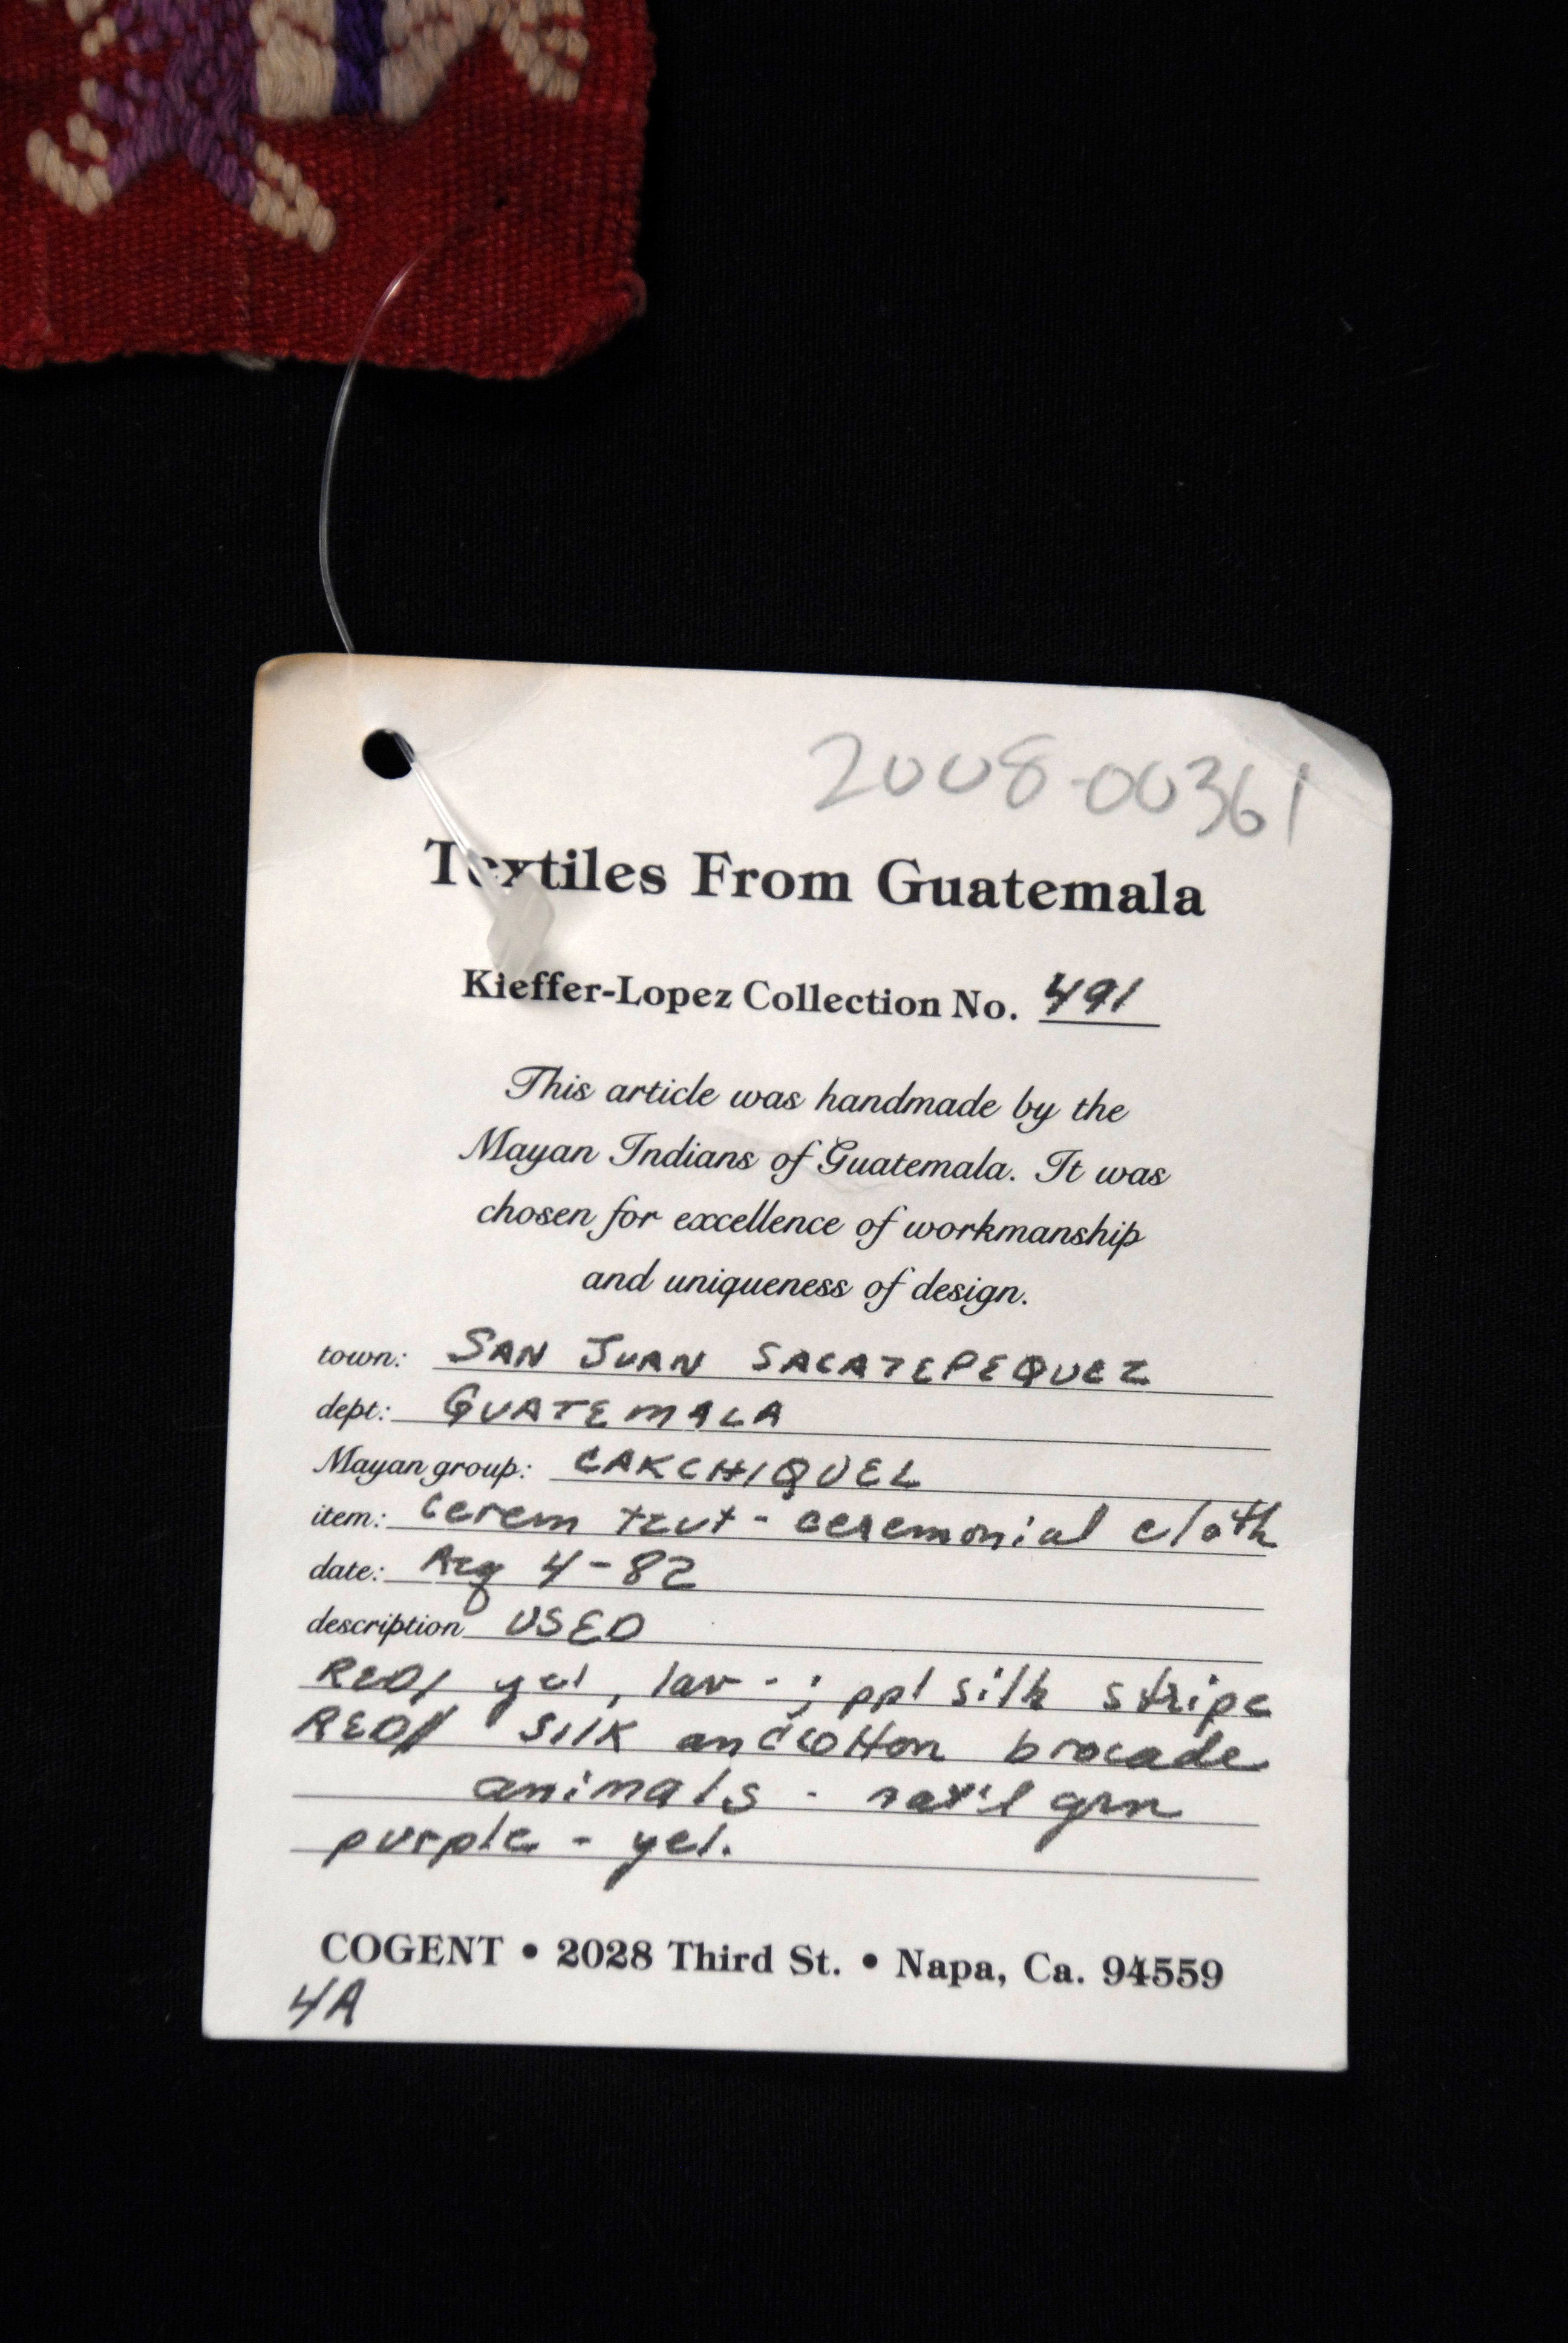 2008-00361
Textiles From Guatemala
Kieffer-Lopez Collection No. 491
This article was handmade by the
Mayan Indians of Guatemala. It was
chosen for excellence of workmanship
and uniqueness of design.
town: SAN JUAN SACATEPEQUEZ
dept: GUATEMALA
Mayan group: CAKCHIQUEL
item: Cerem - ceremonial cloth
date: Acq 4-82
description USED
RED/ yel, lav - ; ppl silk stripe
RED// SILK and cotton brocade
animals - nat'l grn
purple - yel.
COGENT • 2028 Third St. • Napa, Ca. 94559
4A